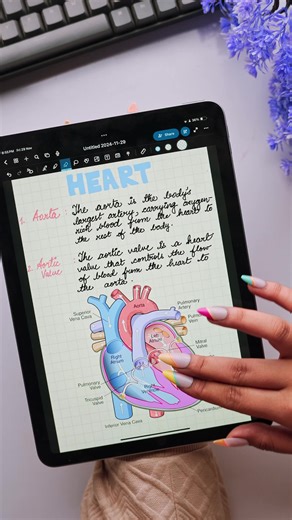 Untitled 2024-11-29
HEART
1. Aorta
The aorta is the body's
largest artery, carrying oxygen-
rich blood from the heart to
the rest of the body.
2. Aortic
Valve
The aortic valve is a heart
valve that controls the flow
of blood from the heart to
the aorta.
Superior
Vena Cava
Aorta
Pulmonary
Artery
Pulmonary
Vein
Left
Atrium
Right
Atrium
Mitral
Valve
Pulmonary
Valve
Tricuspid
Valve
Inferior Vena Cava
Pericardium